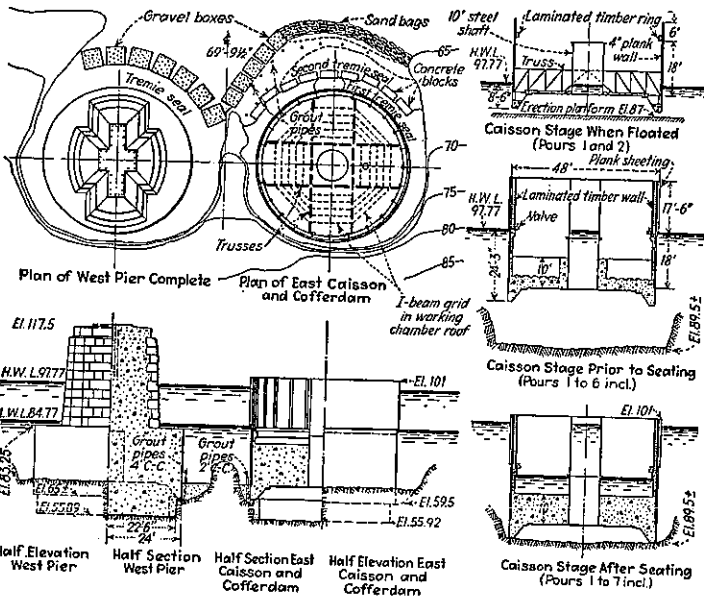 Gravel boxes
Sand bags
69'-9½"
65
Second tremie seal
Concrete
blocks
Tremie
seal
First tremie seal
Grout
pipes
70
75
80
85
Trusses
Plan of West Pier Complete
Plan of East Caisson
and Cofferdam
I-beam grid
in working
chamber roof
10" steel
shaft
Laminated timber ring
6"
4" plank
wall
18'
H.W.L.
97.77
Truss
8'-6"
Erection platform El.87
Caisson Stage When Floated
(Pours 1 and 2)
Plank sheeting
48'
H.W.L.
97.77
Laminated timber wall
Valve
17'-6"
10'
18'
El.89.5±
Caisson Stage Prior to Seating
(Pours 1 to 6 incl.)
El.101
El.89.5±
Caisson Stage After Seating
(Pours 1 to 7 incl.)
El.117.5
H.W.L.97.77
L.W.L.84.77
El.83.25
Grout
pipes
4' C-C.
Grout
pipes
2' C-C.
El.101
El.59.5
El.55.92
22'6"
24'
Half Elevation
West Pier
Half Section
West Pier
Half Section East
Caisson and
Cofferdam
Half Elevation East
Caisson and
Cofferdam